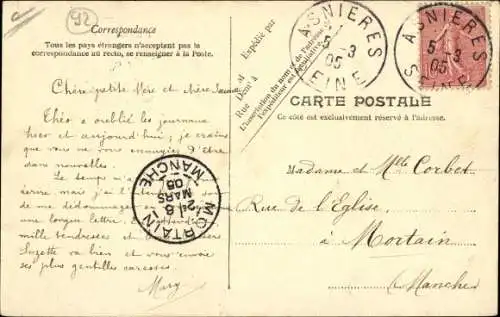 92
Correspondance
Tous les pays étrangers n'acceptent pas la
correspondance au recto, se renseigner à la Poste.
Chère petite Mère et Mère
Théo a oublié les journaux
hier et aujourd'hui; je crains
que vous ne vous ennuyiez d'être
sans nouvelles.
Le temps m'a
écrire mais j'ai l'
me dédommager en
une longue lettre.
mille tendresses
Suzette va bien et vous envoie
ses plus gentilles caresses.
Mary
MORTAIN
8
MARS
05
MANCHE
Expédié par
Demt à
Rue
L'inscription du nom et de l'adresse de
l'expéditeur est facultative.
ASNIÈRES
5-3
05
SEINE
ASNIÈRES
5-3
05
SEINE
CARTE POSTALE
Ce côté est exclusivement réservé à l'adresse.
Madame et Mlle Corbet
Rue de l'Eglise
à Mortain
(Manche)